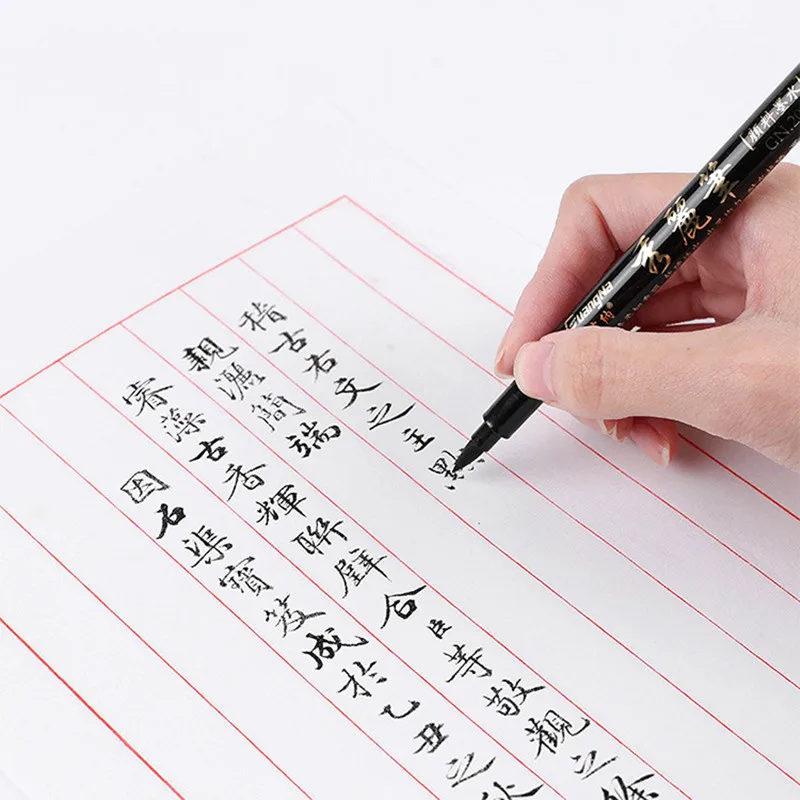 稽古右文之主
親灑簡端
睿藻古香輝聯璧合臣等敬觀之餘
因石渠寶笈成於乙丑之秋
GuangNa
秀麗筆
[顏料墨水